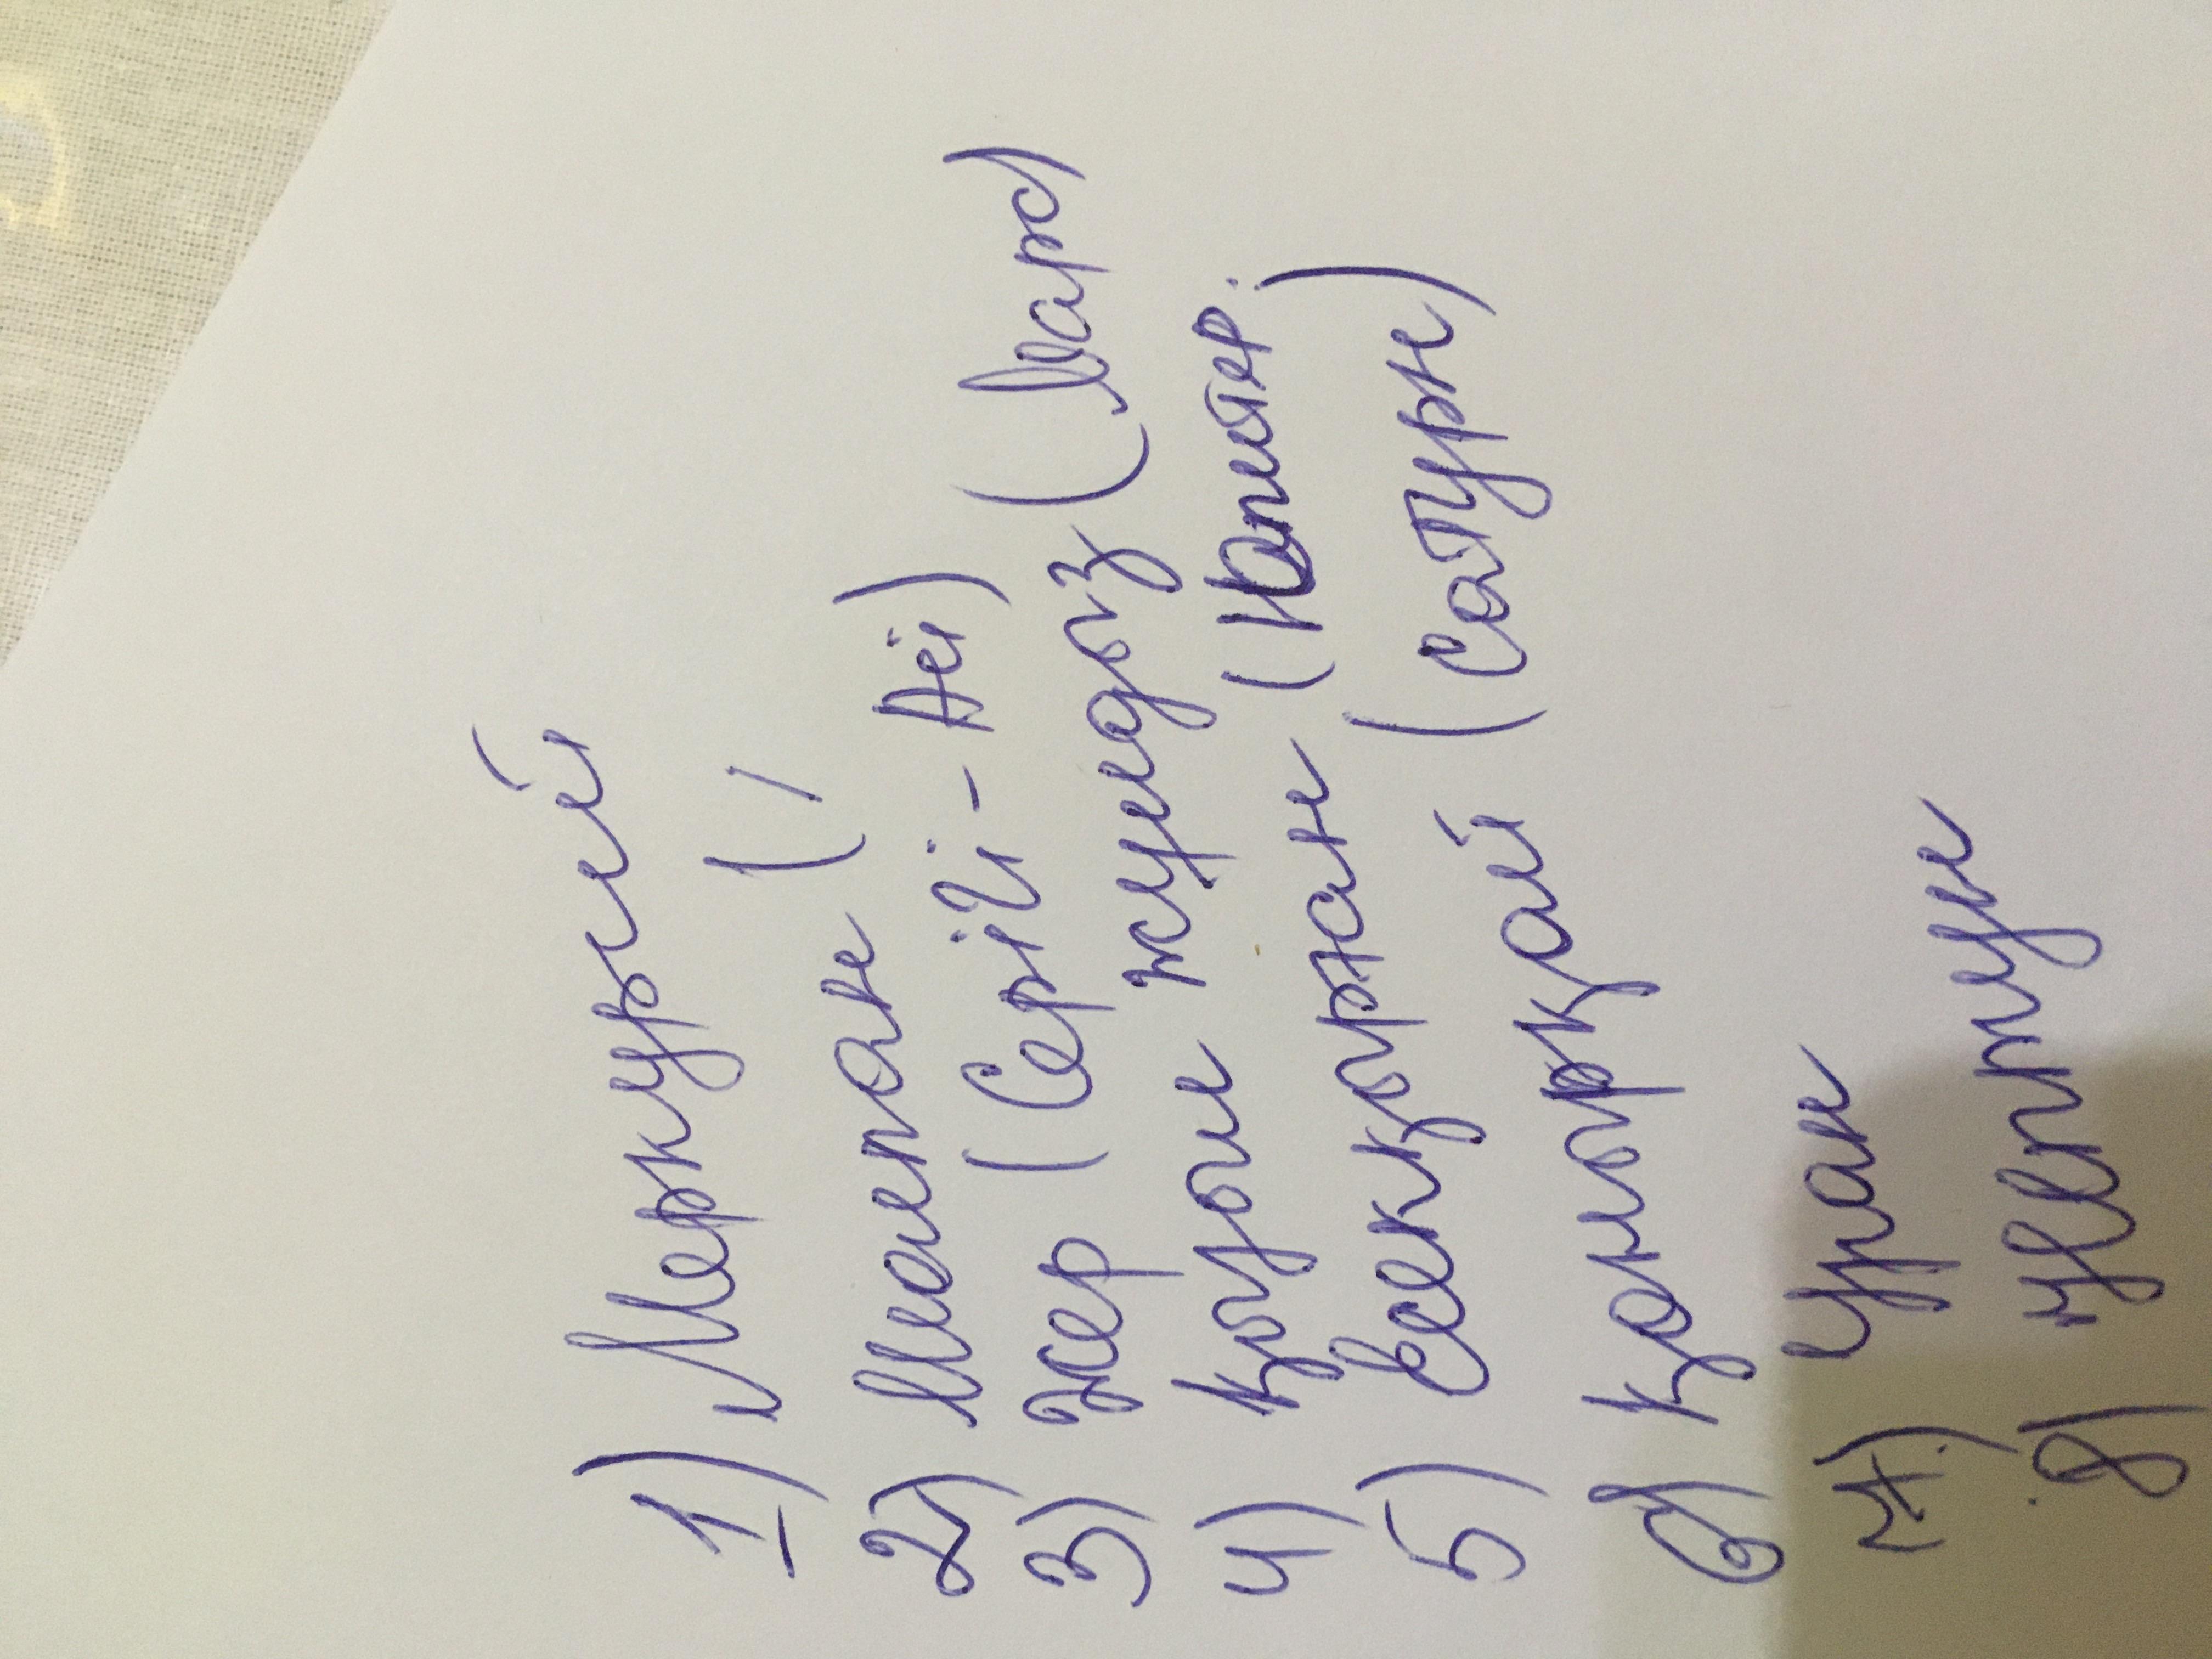 1) Меркурий
2) Шолпан (
3) Жер (Серігі - Ай)
4) Қызыл жұлдыз (Марс)
5) Есекқырған (Юпитер.)
6) Қоңырқай (Сатурн)
7) Уран
8) Нептун